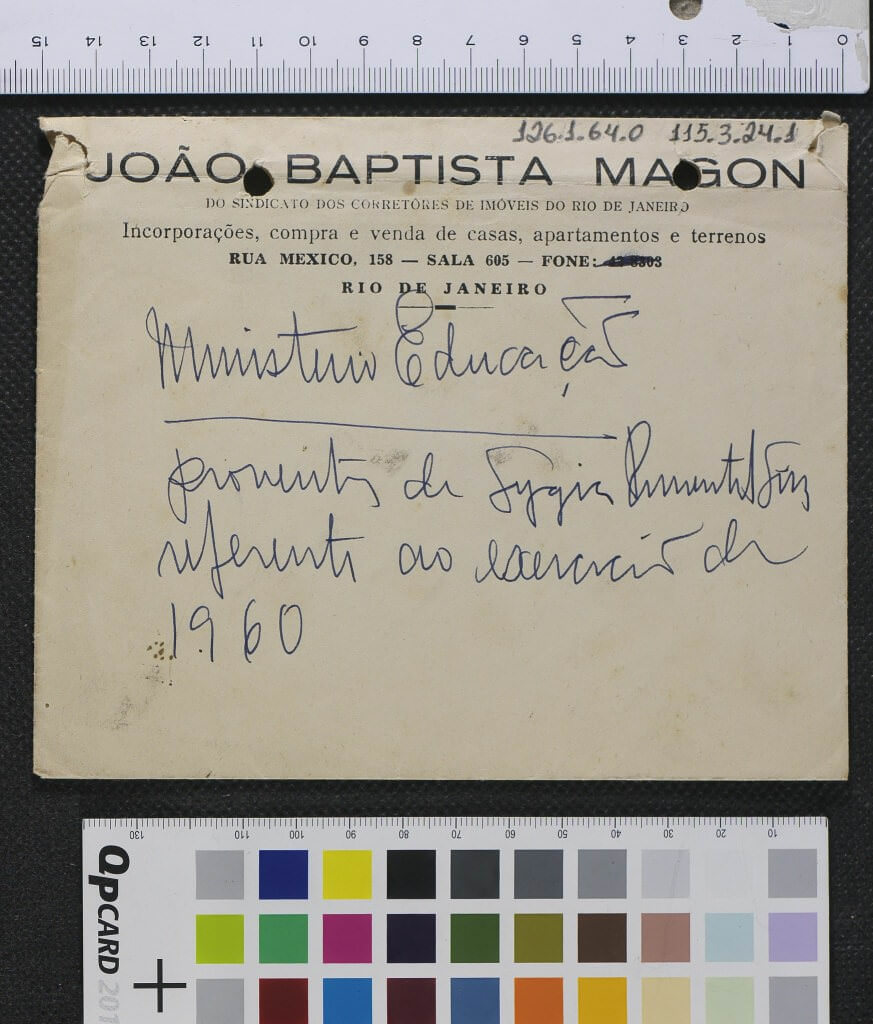 0 1 2 3 4 5 6 7 8 9 10 11 12 13 14 15
126.1.64.0 115.3.24.1
JOÃO BAPTISTA MAGON
DO SINDICATO DOS CORRETÔRES DE IMÓVEIS DO RIO DE JANEIRO
Incorporações, compra e venda de casas, apartamentos e terrenos
RUA MEXICO, 158 — SALA 605 — FONE:
RIO DE JANEIRO
Ministerio Educação
proventos de Lygia Pimentel Lins
referente ao exercicio de
1960
130 110 100 90 80 70 60 50 40 30 20 10
QPCARD 201